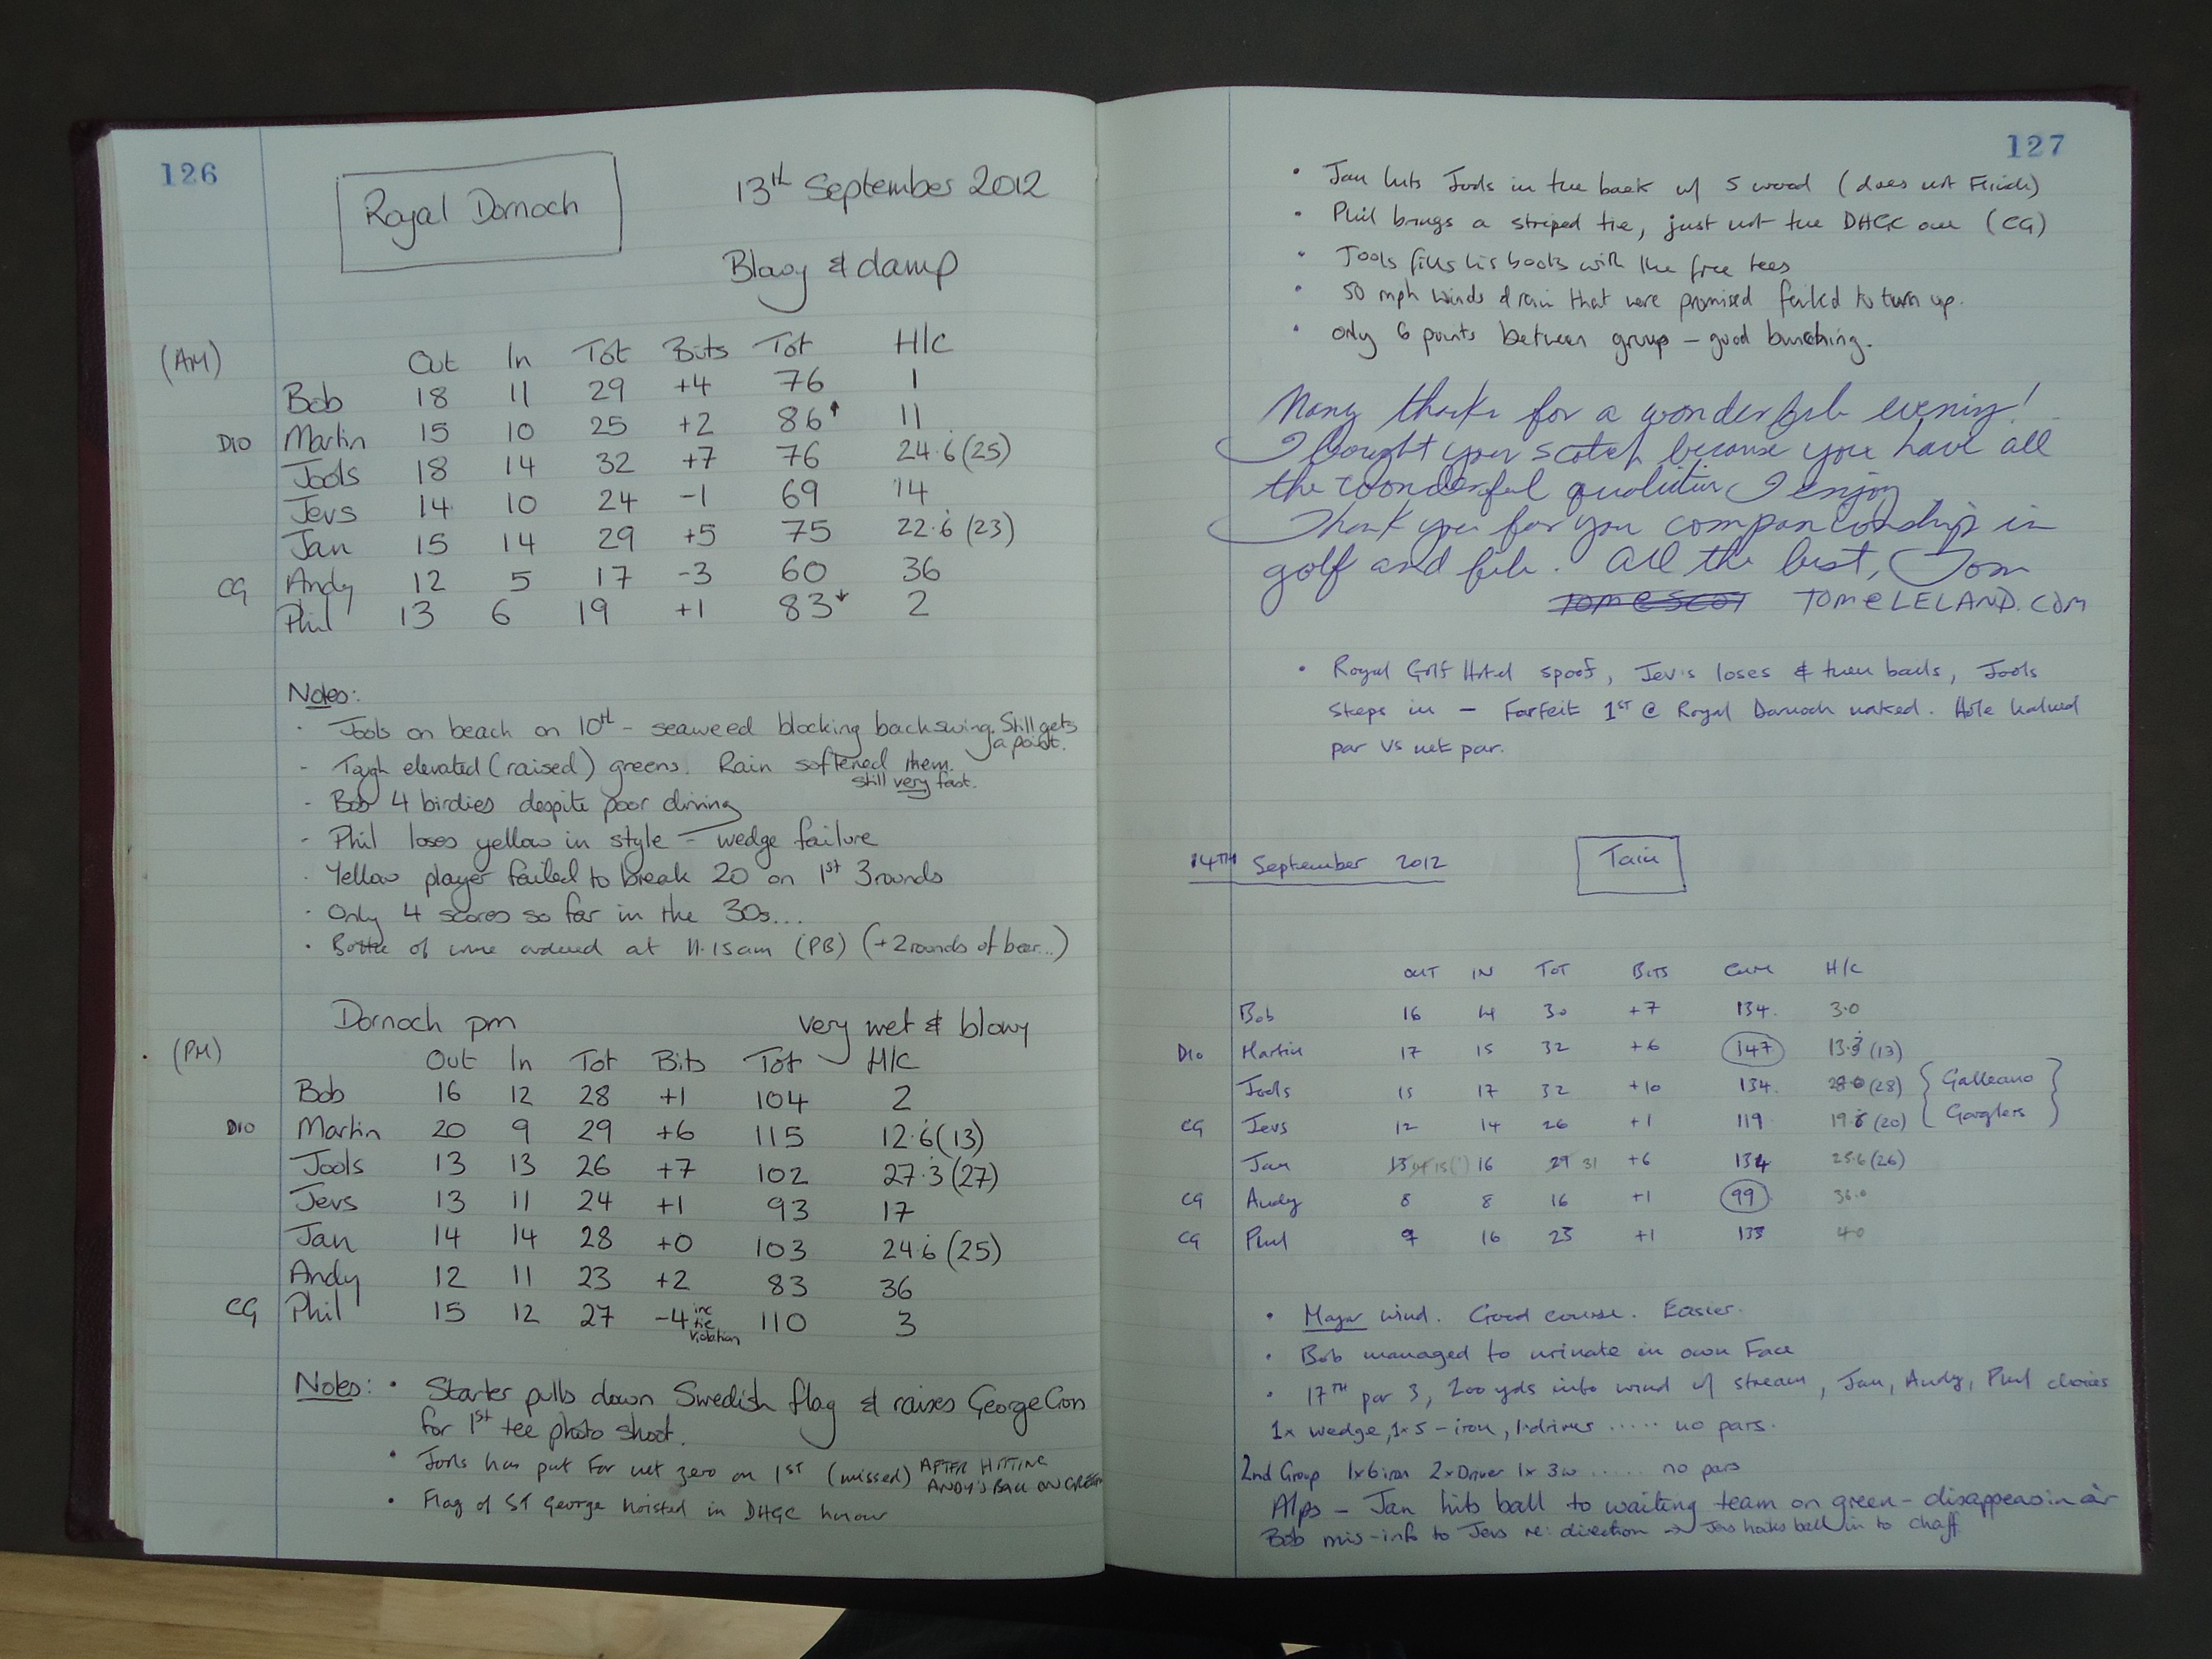 126
Royal Dornoch
13th September 2012
Blowy & damp
(AM)
Out In Tot Bits Tot H/C
Bob 18 11 29 +4 76 1
D10 Martin 15 10 25 +2 86↑ 11
Jools 18 14 32 +7 76 24.6 (25)
Jevs 14 10 24 -1 69 14
Jan 15 14 29 +5 75 22.6 (23)
CG Andy 12 5 17 -3 60 36
Phil 13 6 19 +1 83↓ 2
Notes:
· Jools on beach on 10th - seaweed blocking backswing. Still gets
a point.
- Tough elevated (raised) greens. Rain softened them.
still very fast.
- Bob 4 birdies despite poor driving
- Phil loses yellow in style - wedge failure
· Yellow player failed to break 20 on 1st 3 rounds
· Only 4 scores so far in the 30s...
· Bottle of wine ordered at 11.15am (PB) (+2 rounds of beer...)
Dornoch pm very wet & blowy
(PM)
Out In Tot Bits Tot H/C
Bob 16 12 28 +1 104 2
D10 Martin 20 9 29 +6 115 12.6 (13)
Jools 13 13 26 +7 102 27.3 (27)
Jevs 13 11 24 +1 93 17
Jan 14 14 28 +0 103 24.6 (25)
Andy 12 11 23 +2 83 36
CG Phil 15 12 27 -4 inc tie violation 110 3
Notes: · Starter pulls down Swedish flag & raises George Cross
for 1st tee photo shoot.
· Jools has put for net zero on 1ST (missed) AFTER HITTING
ANDY'S BALL ON GREEN
· Flag of ST George hoisted in DHGC honour
127
· Jan hits Jools in the back w/ 5 wood (does not Flinch)
· Phil brings a striped tie, just not the DHGC one (CG)
· Jools fills his boots with the free tees
· 50 mph winds & rain that were promised failed to turn up.
· only 6 points between group - good bunching.
Many thanks for a wonderful evening!
I bought you scotch because you have all
the wonderful qualities I enjoy
Thank you for you companionship in
golf and life. All the best, Tom
TOM@LELAND.COM
· Royal Golf Hotel spoof, Jevs loses & then bails, Jools
steps in - Forfeit 1ST @ Royal Dornoch naked. Hole halved
par vs net par.
14TH September 2012
Tain
OUT IN TOT BITS CUM H/C
Bob 16 14 30 +7 134 3.0
D10 Martin 17 15 32 +6 147 13.3 (13)
Jools 15 17 32 +10 134 28.0 (28) { Galleano
CG Jevs 12 14 26 +1 119 (20) Garglers }
Jan 15 16 29 31 +6 134 25.6 (26)
CG Andy 8 8 16 +1 99 36.0
CG Phil 16 +1 4.0
· Major wind. Good course. Easier.
· Bob managed to urinate in own Face
· 17TH par 3, 200 yds into wind w/ stream, Jan, Andy, Phil choices
1x wedge, 1x 5-iron, 1xdriver ..... no pars.
2nd Group 1x6 iron 2xDriver 1x 3w ..... no pars
Alps - Jan hits ball to waiting team on green - disappears in air
Bob mis-info to Jevs re: direction → Jevs ball in to chaff